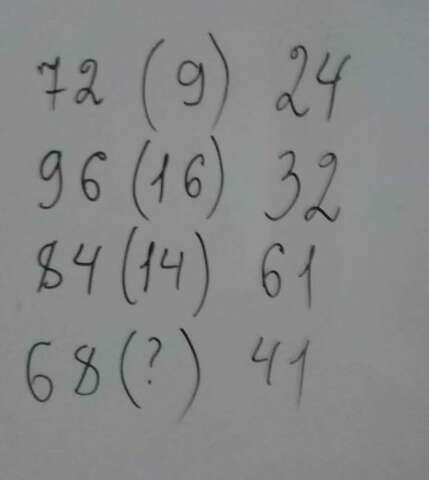 72 (9) 24
96 (16) 32
84 (14) 61
68 (?) 41